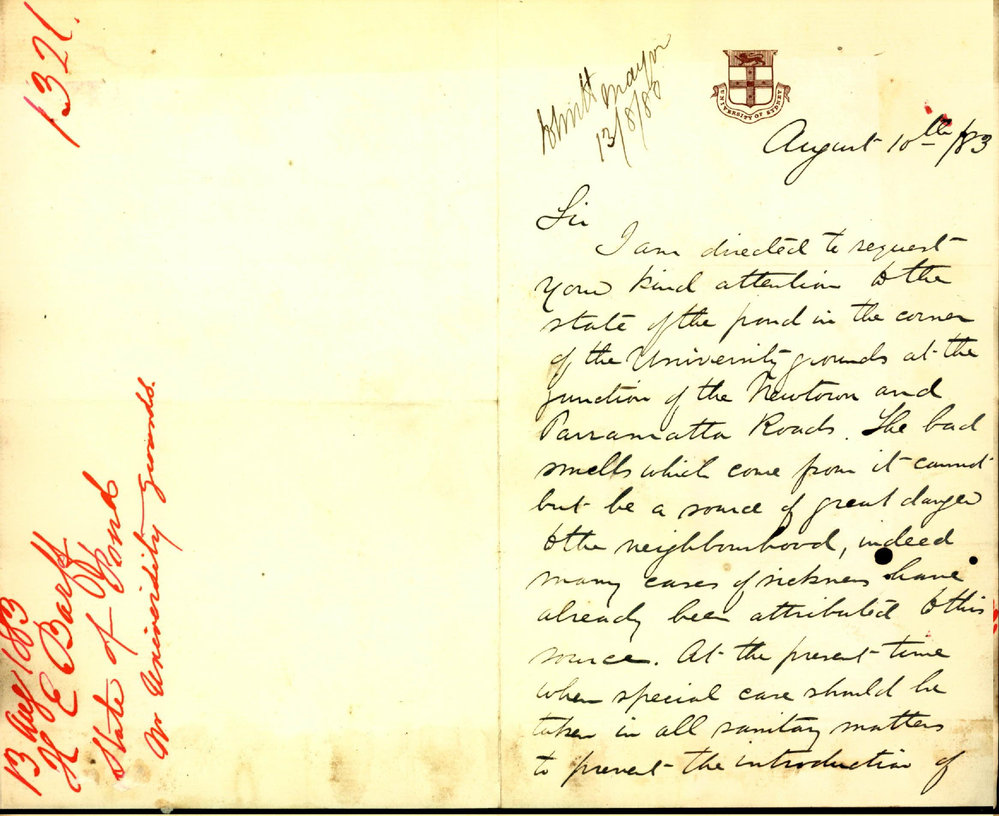 1321.
13 Aug 1883
H E Barff
State of Pond
Nr University grounds.
Submit Mayor
13/8/83
UNIVERSITY OF SYDNEY
August 10th/83
Sir
I am directed to request
your kind attention to the
state of the pond in the corner
of the University grounds at the
junction of the Newtown and
Parramatta Roads. The bad
smells which come from it cannot
but be a source of great danger
to the neighbourhood, indeed
many cases of sickness have
already been attributed to this
source. At the present time
when special care should be
taken in all sanitary matters
to prevent the introduction of